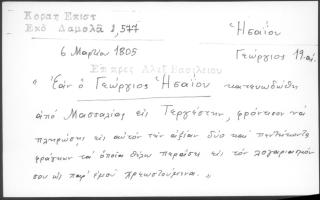 Κοραῆ Ἐπιστ
Ἐκδ Δαμαλᾶ 2,577
Ἠσαΐου
6 Μαρτίου 1805
Γεώργιος 19 αἰ.
Ἐπι πρὸς Ἀλεξ Βασιλείου
" Ἐὰν ὁ Γεώργιος Ἠσαΐου κατευοδωθῇ
ἀπὸ Μασσαλίας εἰς Τεργέστην, φρόντισον νὰ
πληρώσῃς εἰς αὐτὸν τὴν ἀξίαν δύο καὶ πεντήκοντα
φράγκων τὰ ὁποῖα θέλω περάσει εἰς τὸν λογαριασμόν
σου ὡς παρ' ἐμοῦ χρεωστούμενα. "